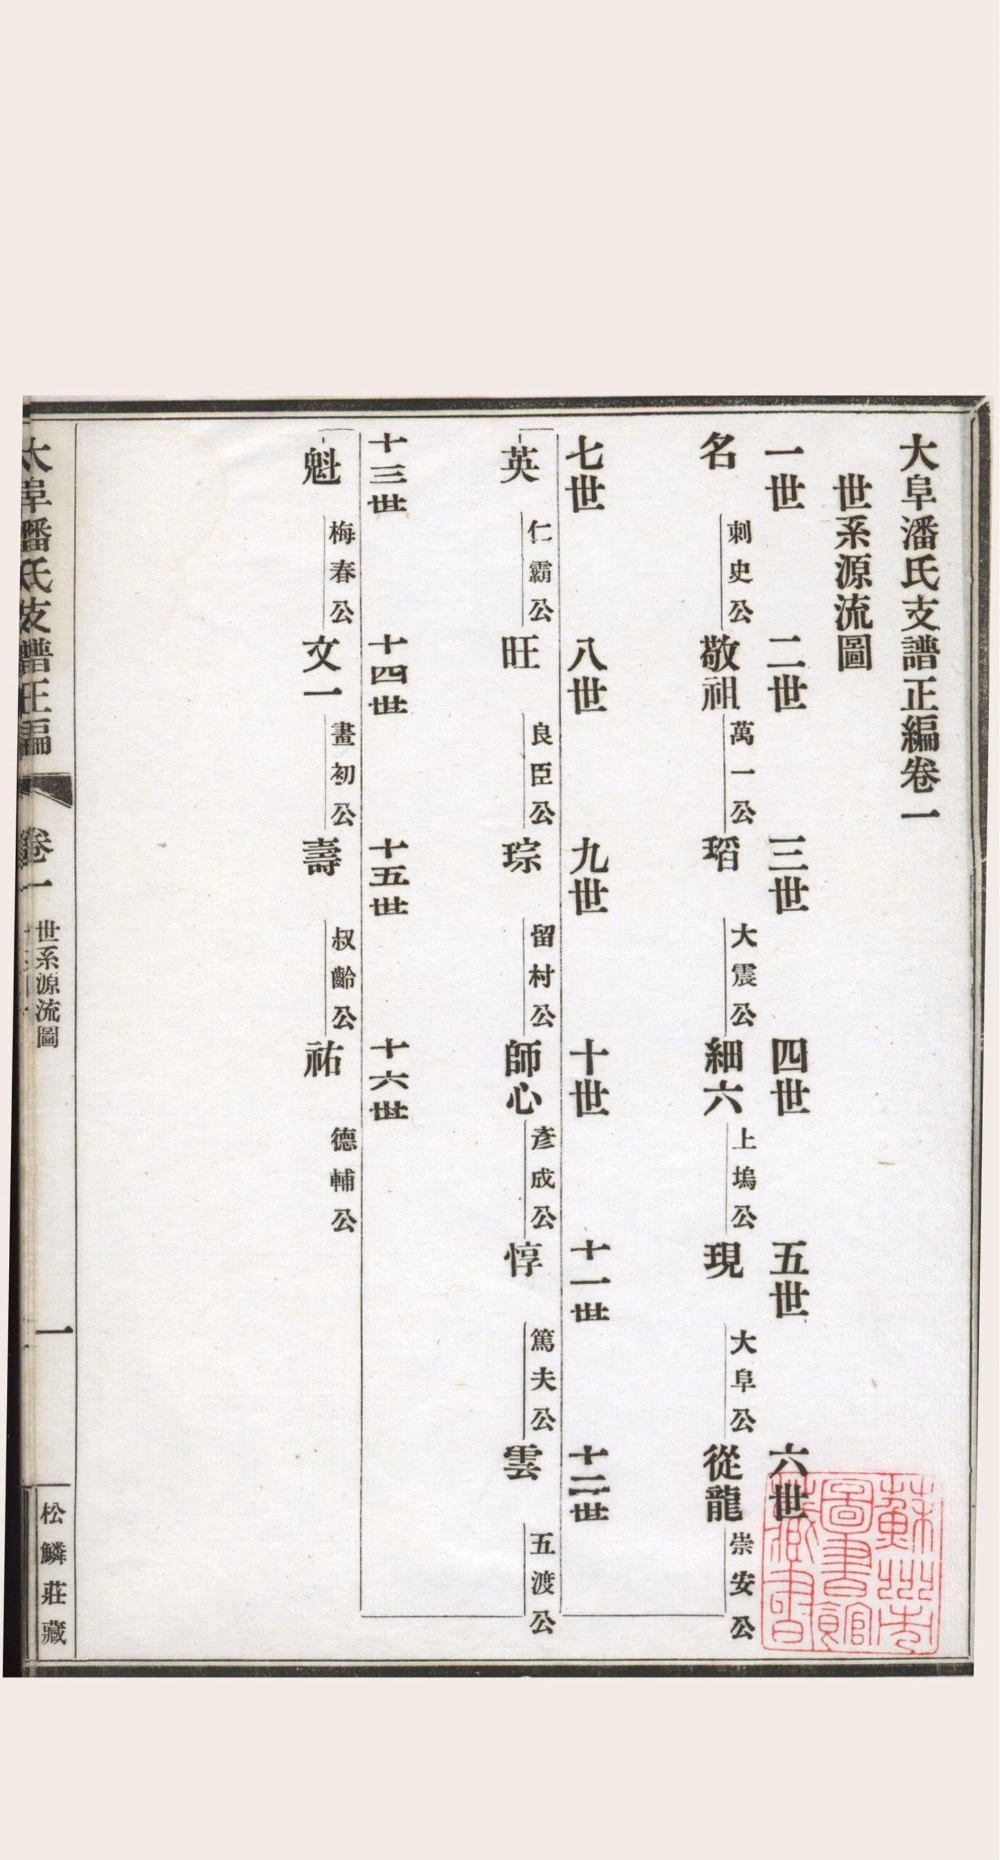 大阜潘氏支譜正編卷一
世系源流圖
一世 二世 三世 四世 五世 六世
名 刺史公 敬祖 萬一公 瑫 大震公 細六 上塢公 現 大阜公 從龍 崇安公
七世 八世 九世 十世 十一世 十二世
英 仁霸公 旺 良臣公 琮 留村公 師心 彥成公 惇 篤夫公 雲 五渡公
十三世 十四世 十五世 十六世
魁 梅春公 文一 畫初公 壽 叔齡公 祐 德輔公
大阜潘氏支譜正編 卷一 世系源流圖 一 松鱗莊藏
蘇州市
圖書館
藏書